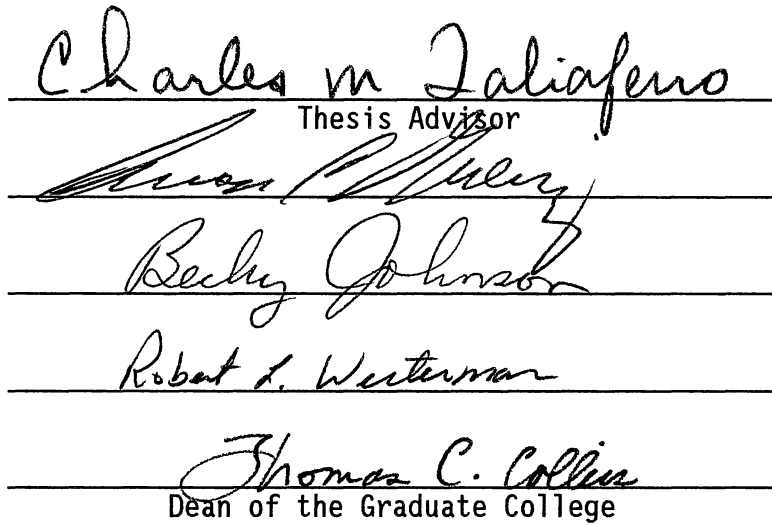 Charles M Taliaferro
Thesis Advisor
Becky Johnson
Robert L. Westerman
Thomas C. Collins
Dean of the Graduate College